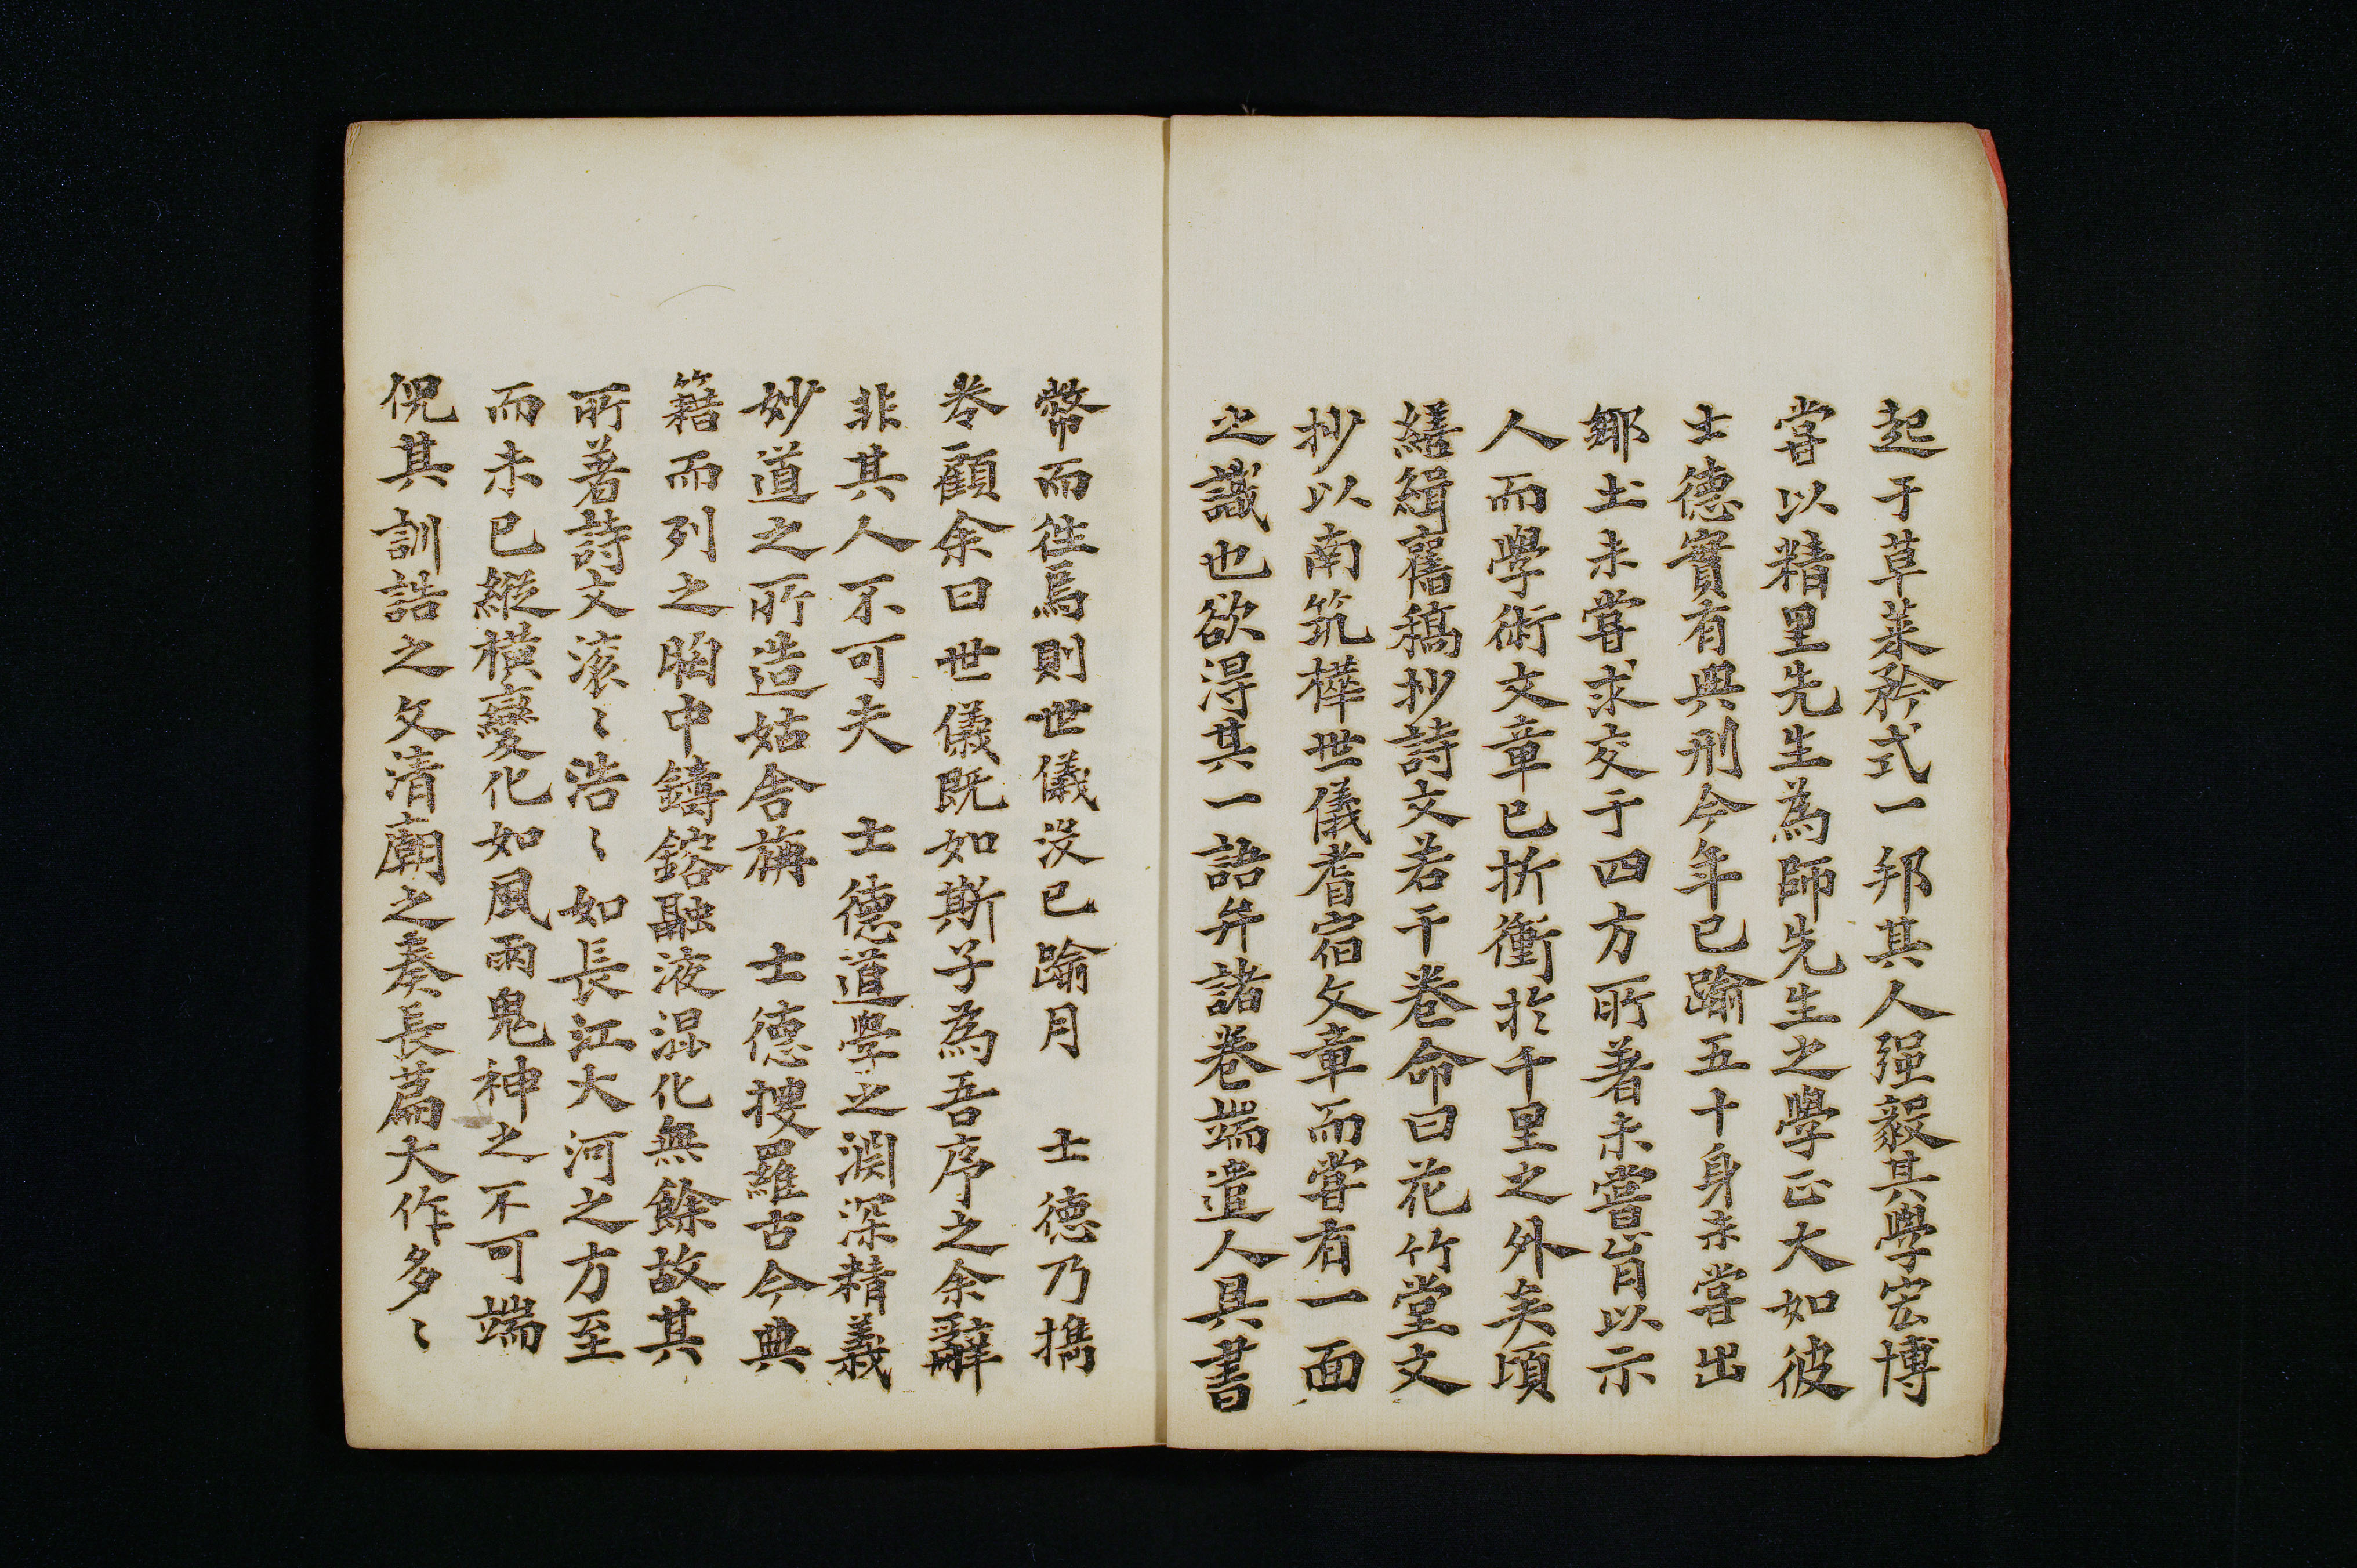 起于草莱矜式一邦其人强毅其學宏博
嘗以精里先生為師先生之學正大如彼
士德實有典刑今年已踰五十身未嘗出
鄉土未嘗求交于四方所著未嘗肯以示
人而學術文章已折衝於千里之外矣頃
繕緝舊稿抄詩文若干卷命曰花竹堂文
抄以南筑樺世儀耆宿文章而嘗有一面
之識也欲淂其一語弁諸卷端遣人具書
幣而往焉則世儀没已踰月　士德乃攜
卷顧余曰世儀既如斯子為吾序之余辭
非其人不可夫　士德道學之淵深精義
妙道之所造姑舍旃　士德搜羅古今典
籍而列之胸中鑄鎔融液混化無餘故其
所著詩文滚〻浩〻如長江大河之方至
而未已縱横變化如風雨鬼神之不可端
倪其訓誥之文清廟之奏長篇大作多〻